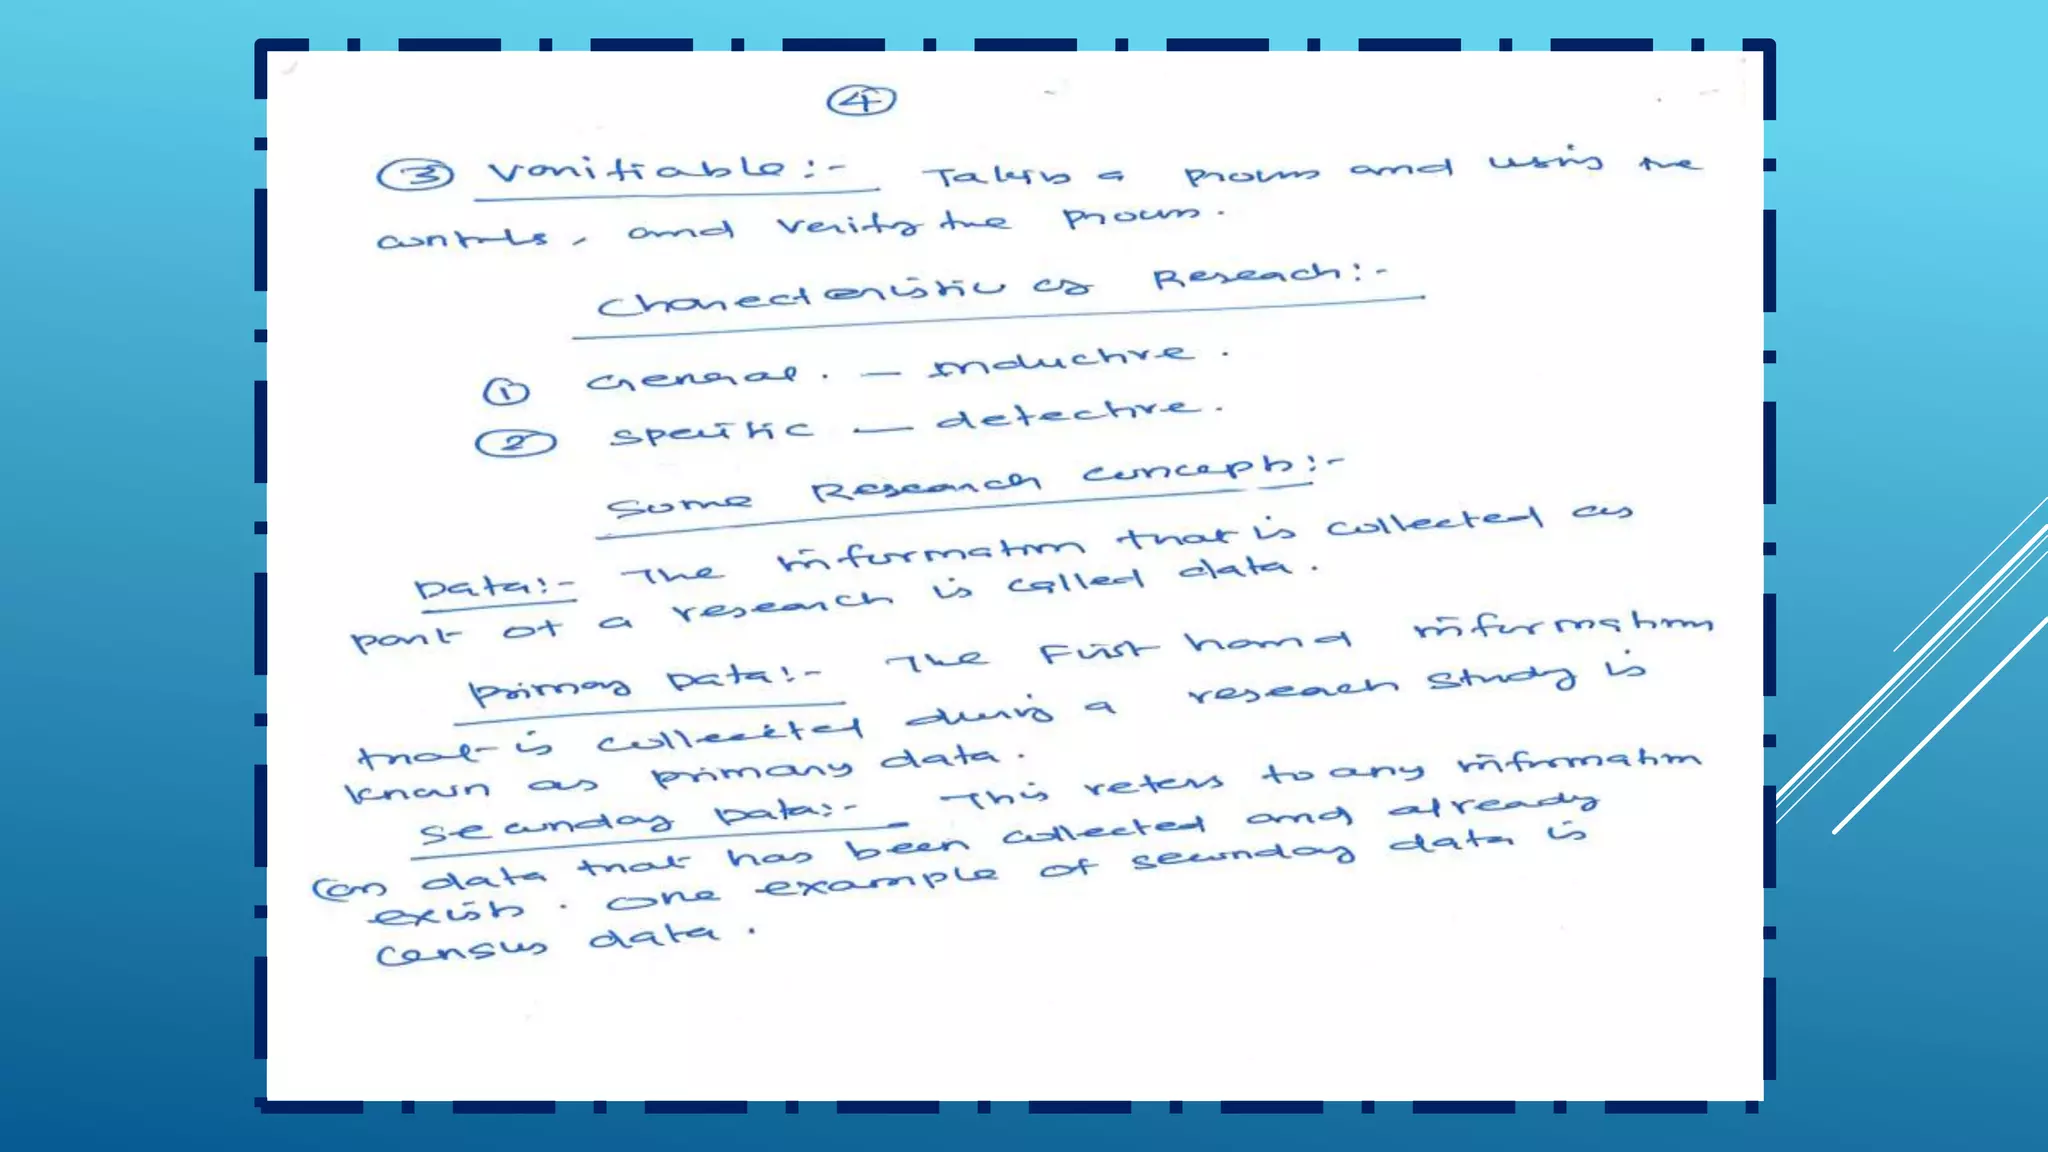 4
3 Verifiable :- Taking a process and using the
controls, and verify the process.
Charecteristic of Reseach :-
1 General. - Inductive.
2 Specific - detective.
Some Research concepts :-
Data :- The information that is collected as
part of a research is called data.
Primary Data :- The First hand information
that is collected during a reseach study is
known as primary data.
Secondary Data :- This refers to any information
(or) data that has been collected and already
exists. One example of secondary data is
census data.